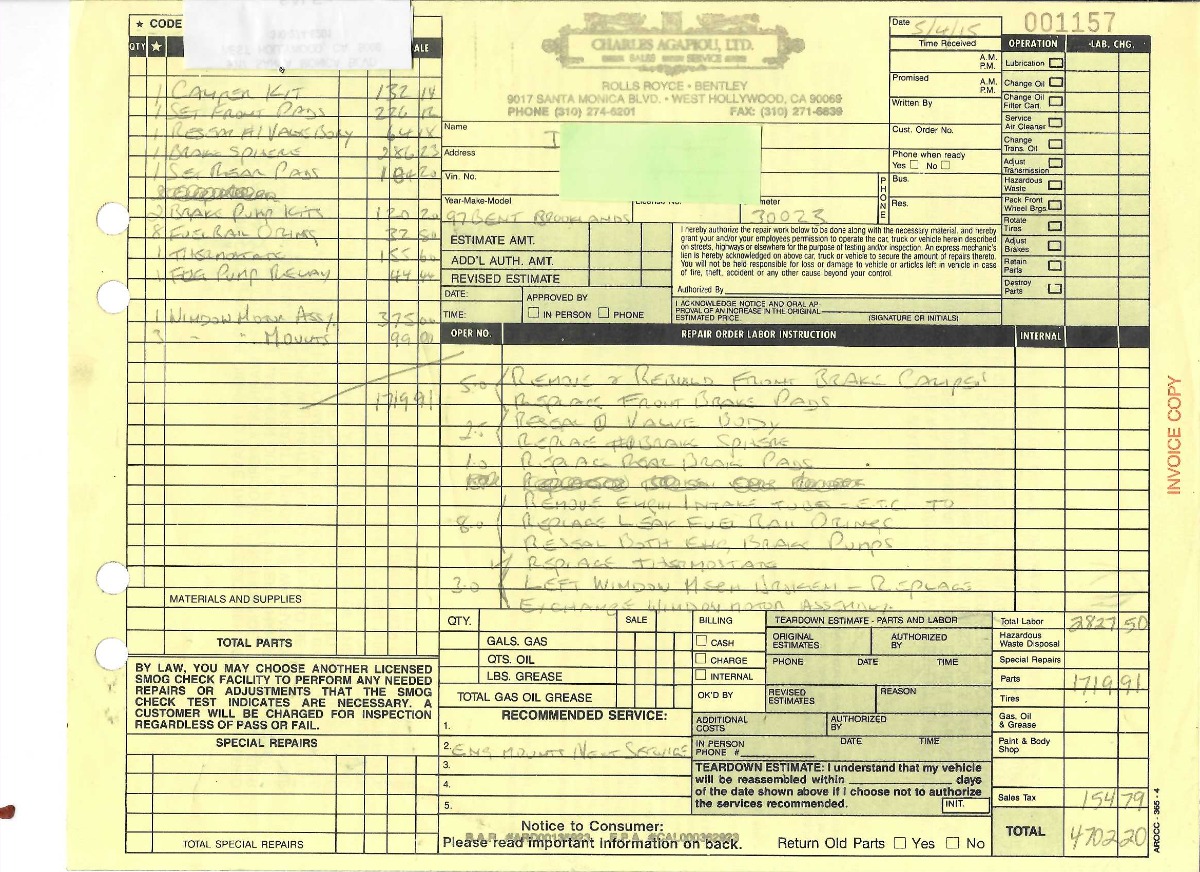 ★ CODE
QTY ★ SALE
1 CALIPER KIT 132 14
1 SET FRONT PADS 226 12
1 RESEAL #1 VALVE BODY 64 18
1 BRAKE SPHERE 286 23
1 SET REAR PADS 184 20
2 BRAKE PUMP KITS 120 20
8 FUEL RAIL ORINGS 32 80
1 THERMOSTATE 155 60
1 FOG PUMP RELAY 44 44
1 WINDOW MOTOR ASSY. 375 00
3 " " MOUNTS 99 00
1719 91
MATERIALS AND SUPPLIES
TOTAL PARTS
BY LAW, YOU MAY CHOOSE ANOTHER LICENSED
SMOG CHECK FACILITY TO PERFORM ANY NEEDED
REPAIRS OR ADJUSTMENTS THAT THE SMOG
CHECK TEST INDICATES ARE NECESSARY. A
CUSTOMER WILL BE CHARGED FOR INSPECTION
REGARDLESS OF PASS OR FAIL.
SPECIAL REPAIRS
TOTAL SPECIAL REPAIRS
CHARLES AGAPIOU, LTD.
SALES SERVICE
ROLLS ROYCE • BENTLEY
9017 SANTA MONICA BLVD. • WEST HOLLYWOOD, CA 90069
PHONE (310) 274-6201 FAX: (310) 271-6839
Name
Address
Vin. No.
Year-Make-Model
97 BENT BROOKLANDS 30023
ESTIMATE AMT.
ADD'L AUTH. AMT.
REVISED ESTIMATE
DATE:
TIME:
APPROVED BY
IN PERSON PHONE
I hereby authorize the repair work below to be done along with the necessary material, and hereby
grant your and/your employees permission to operate the car, truck or vehicle herein described
on streets, highways or elsewhere for the purpose of testing and/or inspection. An express mechanic's
lien is hereby acknowledged on above car, truck or vehicle to secure the amount of repairs thereto.
You will not be held responsible for loss or damage to vehicle or articles left in vehicle in case
of fire, theft, accident or any other cause beyond your control.
Authorized By
I ACKNOWLEDGE NOTICE AND ORAL AP-
PROVAL OF AN INCREASE IN THE ORIGINAL
ESTIMATED PRICE.
(SIGNATURE OR INITIALS)
Date 5/4/15
Time Received
A.M.
P.M.
Promised
A.M.
P.M.
Written By
Cust. Order No.
Phone when ready
Yes No
PHONE
Bus.
Res.
001157
OPERATION LAB. CHG.
Lubrication
Change Oil
Change Oil
Filter Cart.
Service
Air Cleaner
Change
Trans. Oil
Adjust
Transmission
Hazardous
Waste
Pack Front
Wheel Brgs.
Rotate
Tires
Adjust
Brakes
Retain
Parts
Destroy
Parts
OPER NO. REPAIR ORDER LABOR INSTRUCTION INTERNAL
5.0 REMOVE & REBUILD FRONT BRAKE CALIPER
REPLACE FRONT BRAKE PADS
2.5 RESEAL VALVE BODY
REPLACE #1 BRAKE SPHERE
1.0 REPLACE REAR BRAKE PADS
REMOVE ENGIN INTAKE TUBE - ETC TO
8.0 REPLACE LEAK FUEL RAIL ORINGS
RESEAL BOTH ENG BRAKE PUMPS
REPLACE THERMOSTATE
3.0 LEFT WINDOW MECH BROKEN - REPLACE
EXCHANGE WINDOW MOTOR ASSEMBLY.
INVOICE COPY
QTY. SALE
GALS. GAS
QTS. OIL
LBS. GREASE
TOTAL GAS OIL GREASE
RECOMMENDED SERVICE:
1.
2. ENG MOUNTS NEXT SERVICE
3.
4.
5.
BILLING
CASH
CHARGE
INTERNAL
OK'D BY
TEARDOWN ESTIMATE - PARTS AND LABOR
ORIGINAL
ESTIMATES
AUTHORIZED
BY
PHONE DATE TIME
REVISED
ESTIMATES
REASON
ADDITIONAL
COSTS
AUTHORIZED
BY
IN PERSON
PHONE #
DATE TIME
TEARDOWN ESTIMATE: I understand that my vehicle
will be reassembled within days
of the date shown above if I choose not to authorize
the services recommended.
INIT.
Notice to Consumer:
Please read important information on back.
Return Old Parts Yes No
Total Labor 2827 50
Hazardous
Waste Disposal
Special Repairs
Parts 1719 91
Tires
Gas, Oil
& Grease
Paint & Body
Shop
Sales Tax 154 79
TOTAL 4702 20
AROCC - 365 - 4